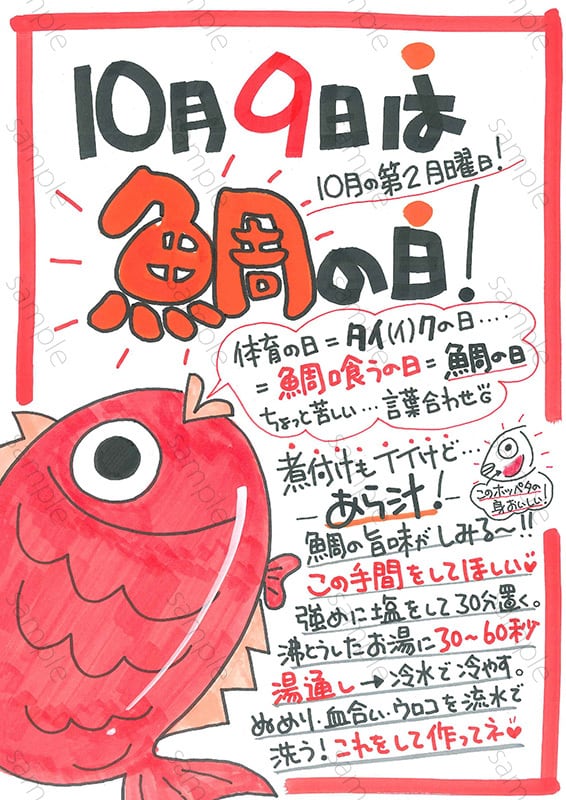 10月9日は
10月の第2月曜日!
鯛の日!
体育の日=タイ(イ)クの日‥‥
=鯛喰うの日=鯛の日
ちょっと苦しい…言葉合わせ
煮付けもイイけど…
あら汁!
このホッペタの
身おいしい!
鯛の旨味がしみる〜!!
この手間をしてほしい♥
強めに塩をして30分置く。
沸とうしたお湯に30〜60秒
湯通し→冷水で冷やす。
ぬめり、血合い、ウロコを流水で
洗う!これをして作ってネ♥
sample